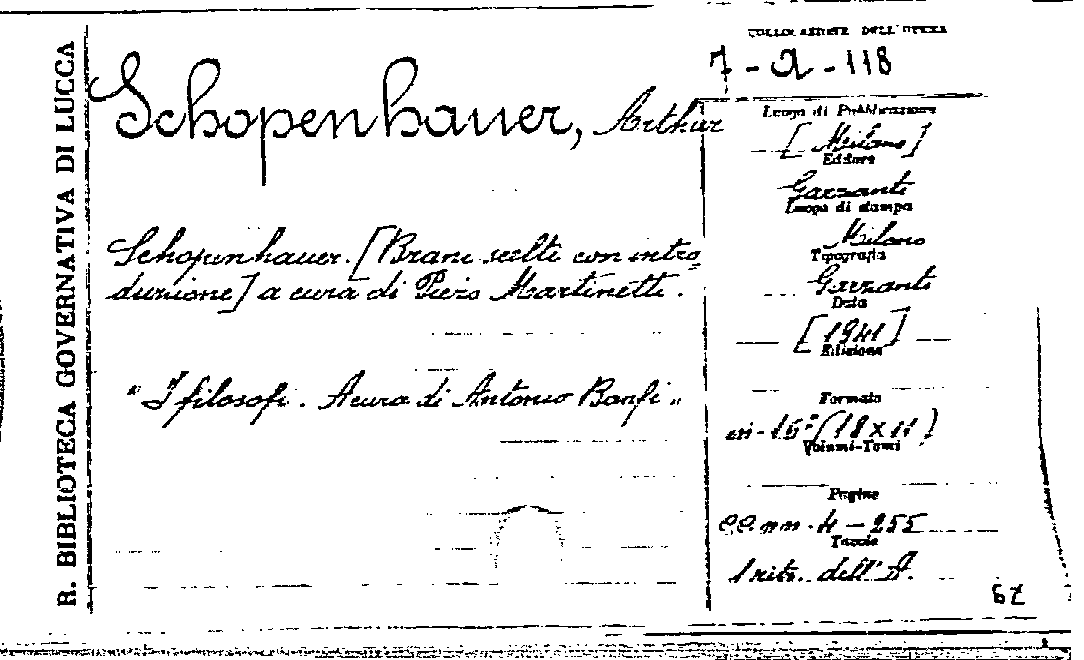 R. BIBLIOTECA GOVERNATIVA DI LUCCA
COLLOCAZIONE DELL'OPERA
7-A-118
Schopenhauer, Arthur
Luogo di Pubblicazione
[Milano]
Editore
Garzanti
Luogo di stampa
Milano
Tipografia
Garzanti
Data
[1941]
Edizione
Schopenhauer. [Brani scelti con intro-
duzione] a cura di Piero Martinetti.
"I filosofi. A cura di Antonio Banfi"
Formato
in-16° (18x11)
Volumi-Tomi
Pagine
cc.nn. 4-255
Tavole
1 ritr. dell'A.